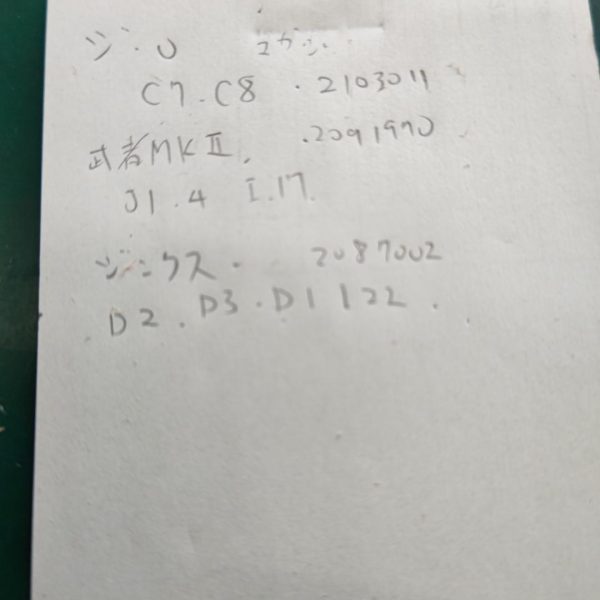 ジ・O 2かい
C7.C8 .2103011
武者MKⅡ. .2091970
J1.4 I.17.
ジンクス. 2087002
D2.D3.D1 122.